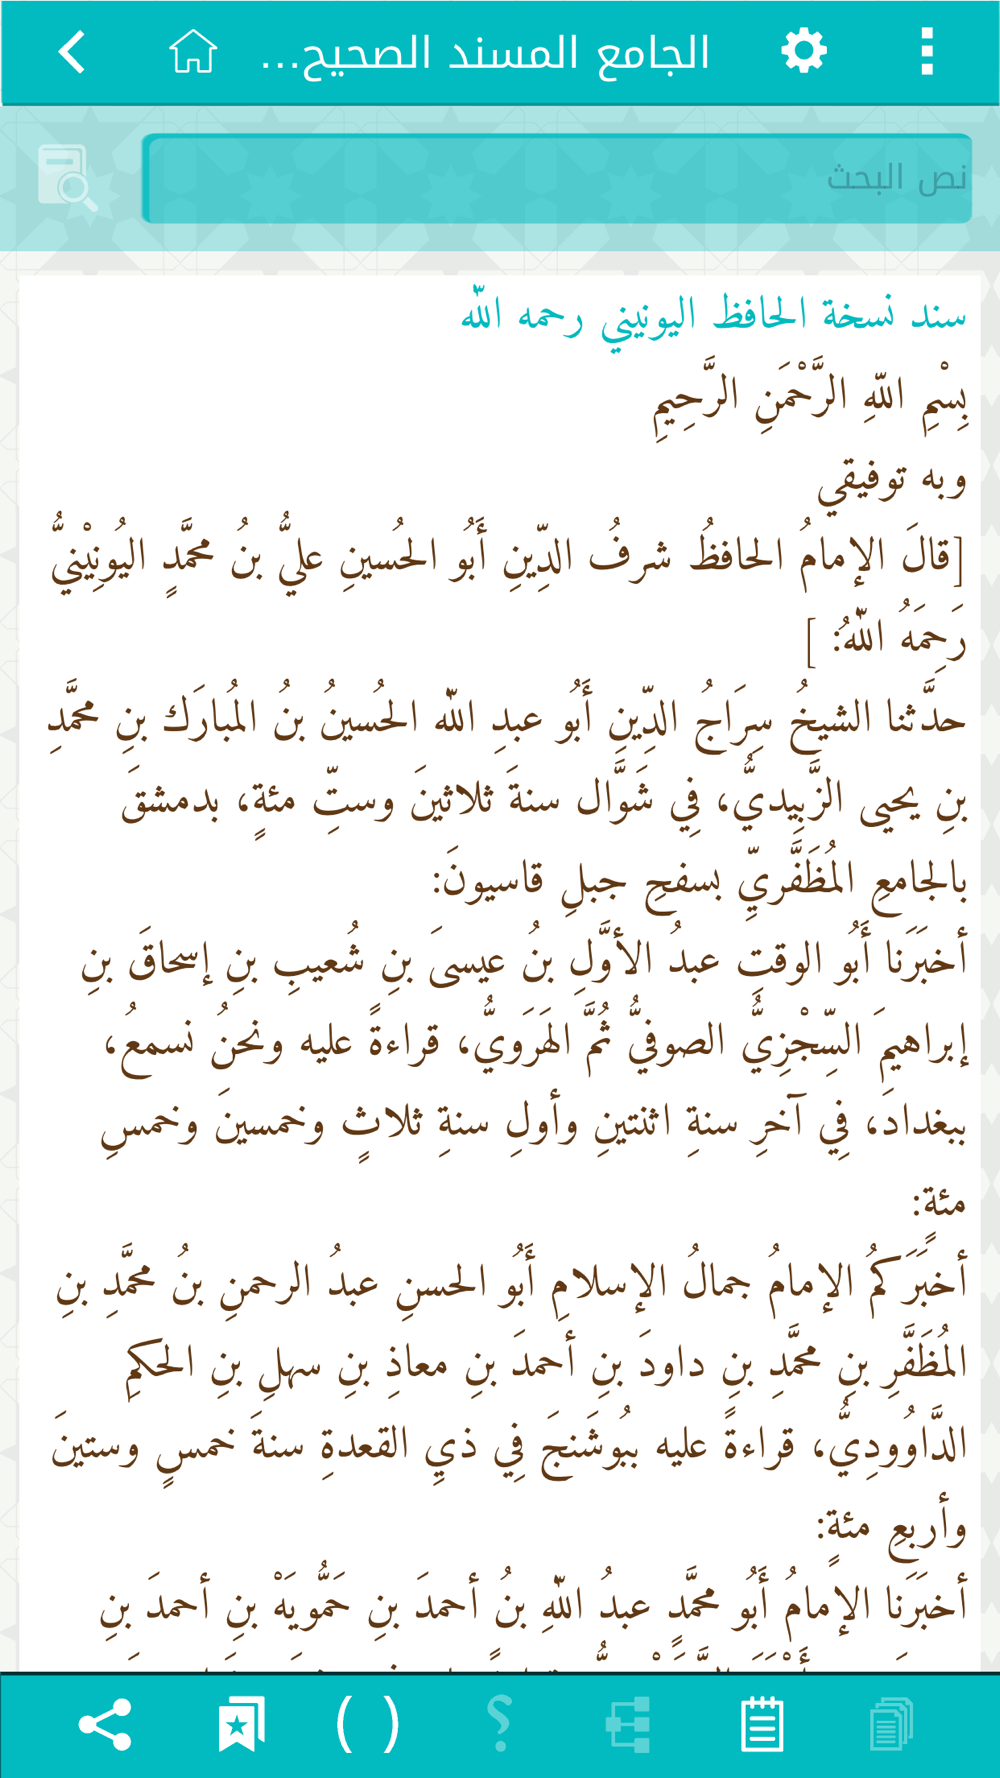 الجامع المسند الصحيح...
نص البحث
سند نسخة الحافظ اليونيني رحمه الله
بِسْمِ اللهِ الرَّحْمَنِ الرَّحِيمِ
وبه توفيقي
[قالَ الإمامُ الحافظُ شرفُ الدِّينِ أَبُو الحُسينِ عليُّ بنُ محمَّدٍ اليُونِيْنيُّ
رَحِمَهُ اللهُ: ]
حدَّثنا الشيخُ سِرَاجُ الدِّينِ أَبُو عبدِ الله الحُسينُ بنُ المُبارَك بنِ محمَّدِ
بنِ يحيى الزَّبِيديُّ، فِي شَوَّال سنةَ ثلاثينَ وستِّ مئةٍ، بدمشقَ
بالجامعِ المُظَفَّريِّ بسفحِ جبلِ قاسيونَ:
أخبَرَنا أَبُو الوقتِ عبدُ الأوَّلِ بنُ عيسىَ بنِ شُعيبِ بنِ إسحاقَ بنِ
إبراهيمَ السِّجْزِيُّ الصوفيُّ ثُمَّ الهَرَويُّ، قراءةً عليه ونحنُ نسمعُ،
ببغدادَ، فِي آخرِ سنةِ اثنتينِ وأولِ سنةِ ثلاثٍ وخمسينَ وخمسِ
مئةٍ:
أخبَرَكمُ الإمامُ جمالُ الإسلامِ أَبُو الحسنِ عبدُ الرحمنِ بنُ محمَّدِ بنِ
المُظَفَّرِ بنِ محمَّدِ بنِ داودَ بنِ أحمدَ بنِ معاذِ بنِ سهلِ بنِ الحكمِ
الدَّاوُودِيُّ، قراءةً عليه ببُوشَنجَ فِي ذيِ القعدةِ سنةَ خمسٍ وستينَ
وأربعِ مئةٍ:
أخبَرَنا الإمامُ أَبُو محمَّدٍ عبدُ اللهِ بنُ أحمدَ بنِ حَمُّويَهْ بنِ أحمدَ بنِ